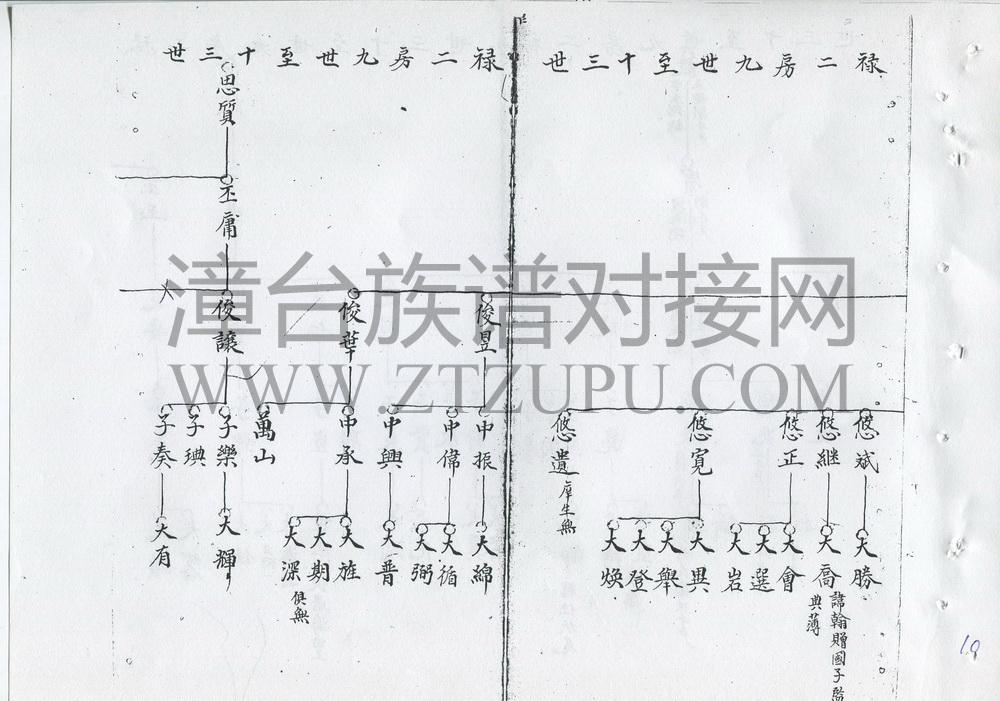 禄二房九世至十三世
悠斌
悠継
悠正
悠寛
悠遺
庠生無
大勝
大喬
諱翰贈國子監
典薄
大會
大選
大岩
大異
大舉
大登
大煥
禄二房九世至十三世
思質
丕庸
俊昱
俊葉
俊讓
中振
中偉
中興
中承
萬山
子樂
子㻶
子奏
大綿
大循
大弼
大普
大旌
大期
大深
俱無
大輝
大有
漳台族谱对接网
WWW.ZTZUPU.COM
10